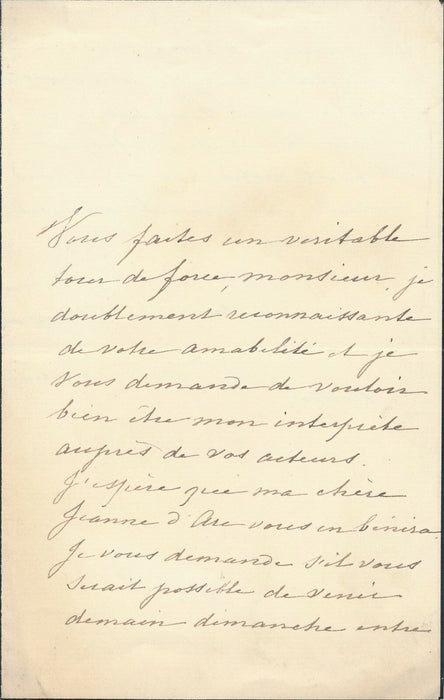 Vous faites un veritable
tour de force, monsieur, je
doublement reconnaissante
de votre amabilité et je
vous demande de vouloir
bien être mon interprète
auprès de vos acteurs.
J'espère que ma chère
Jeanne d'Arc vous en bénira
Je vous demande s'il vous
serait possible de venir
demain dimanche entre